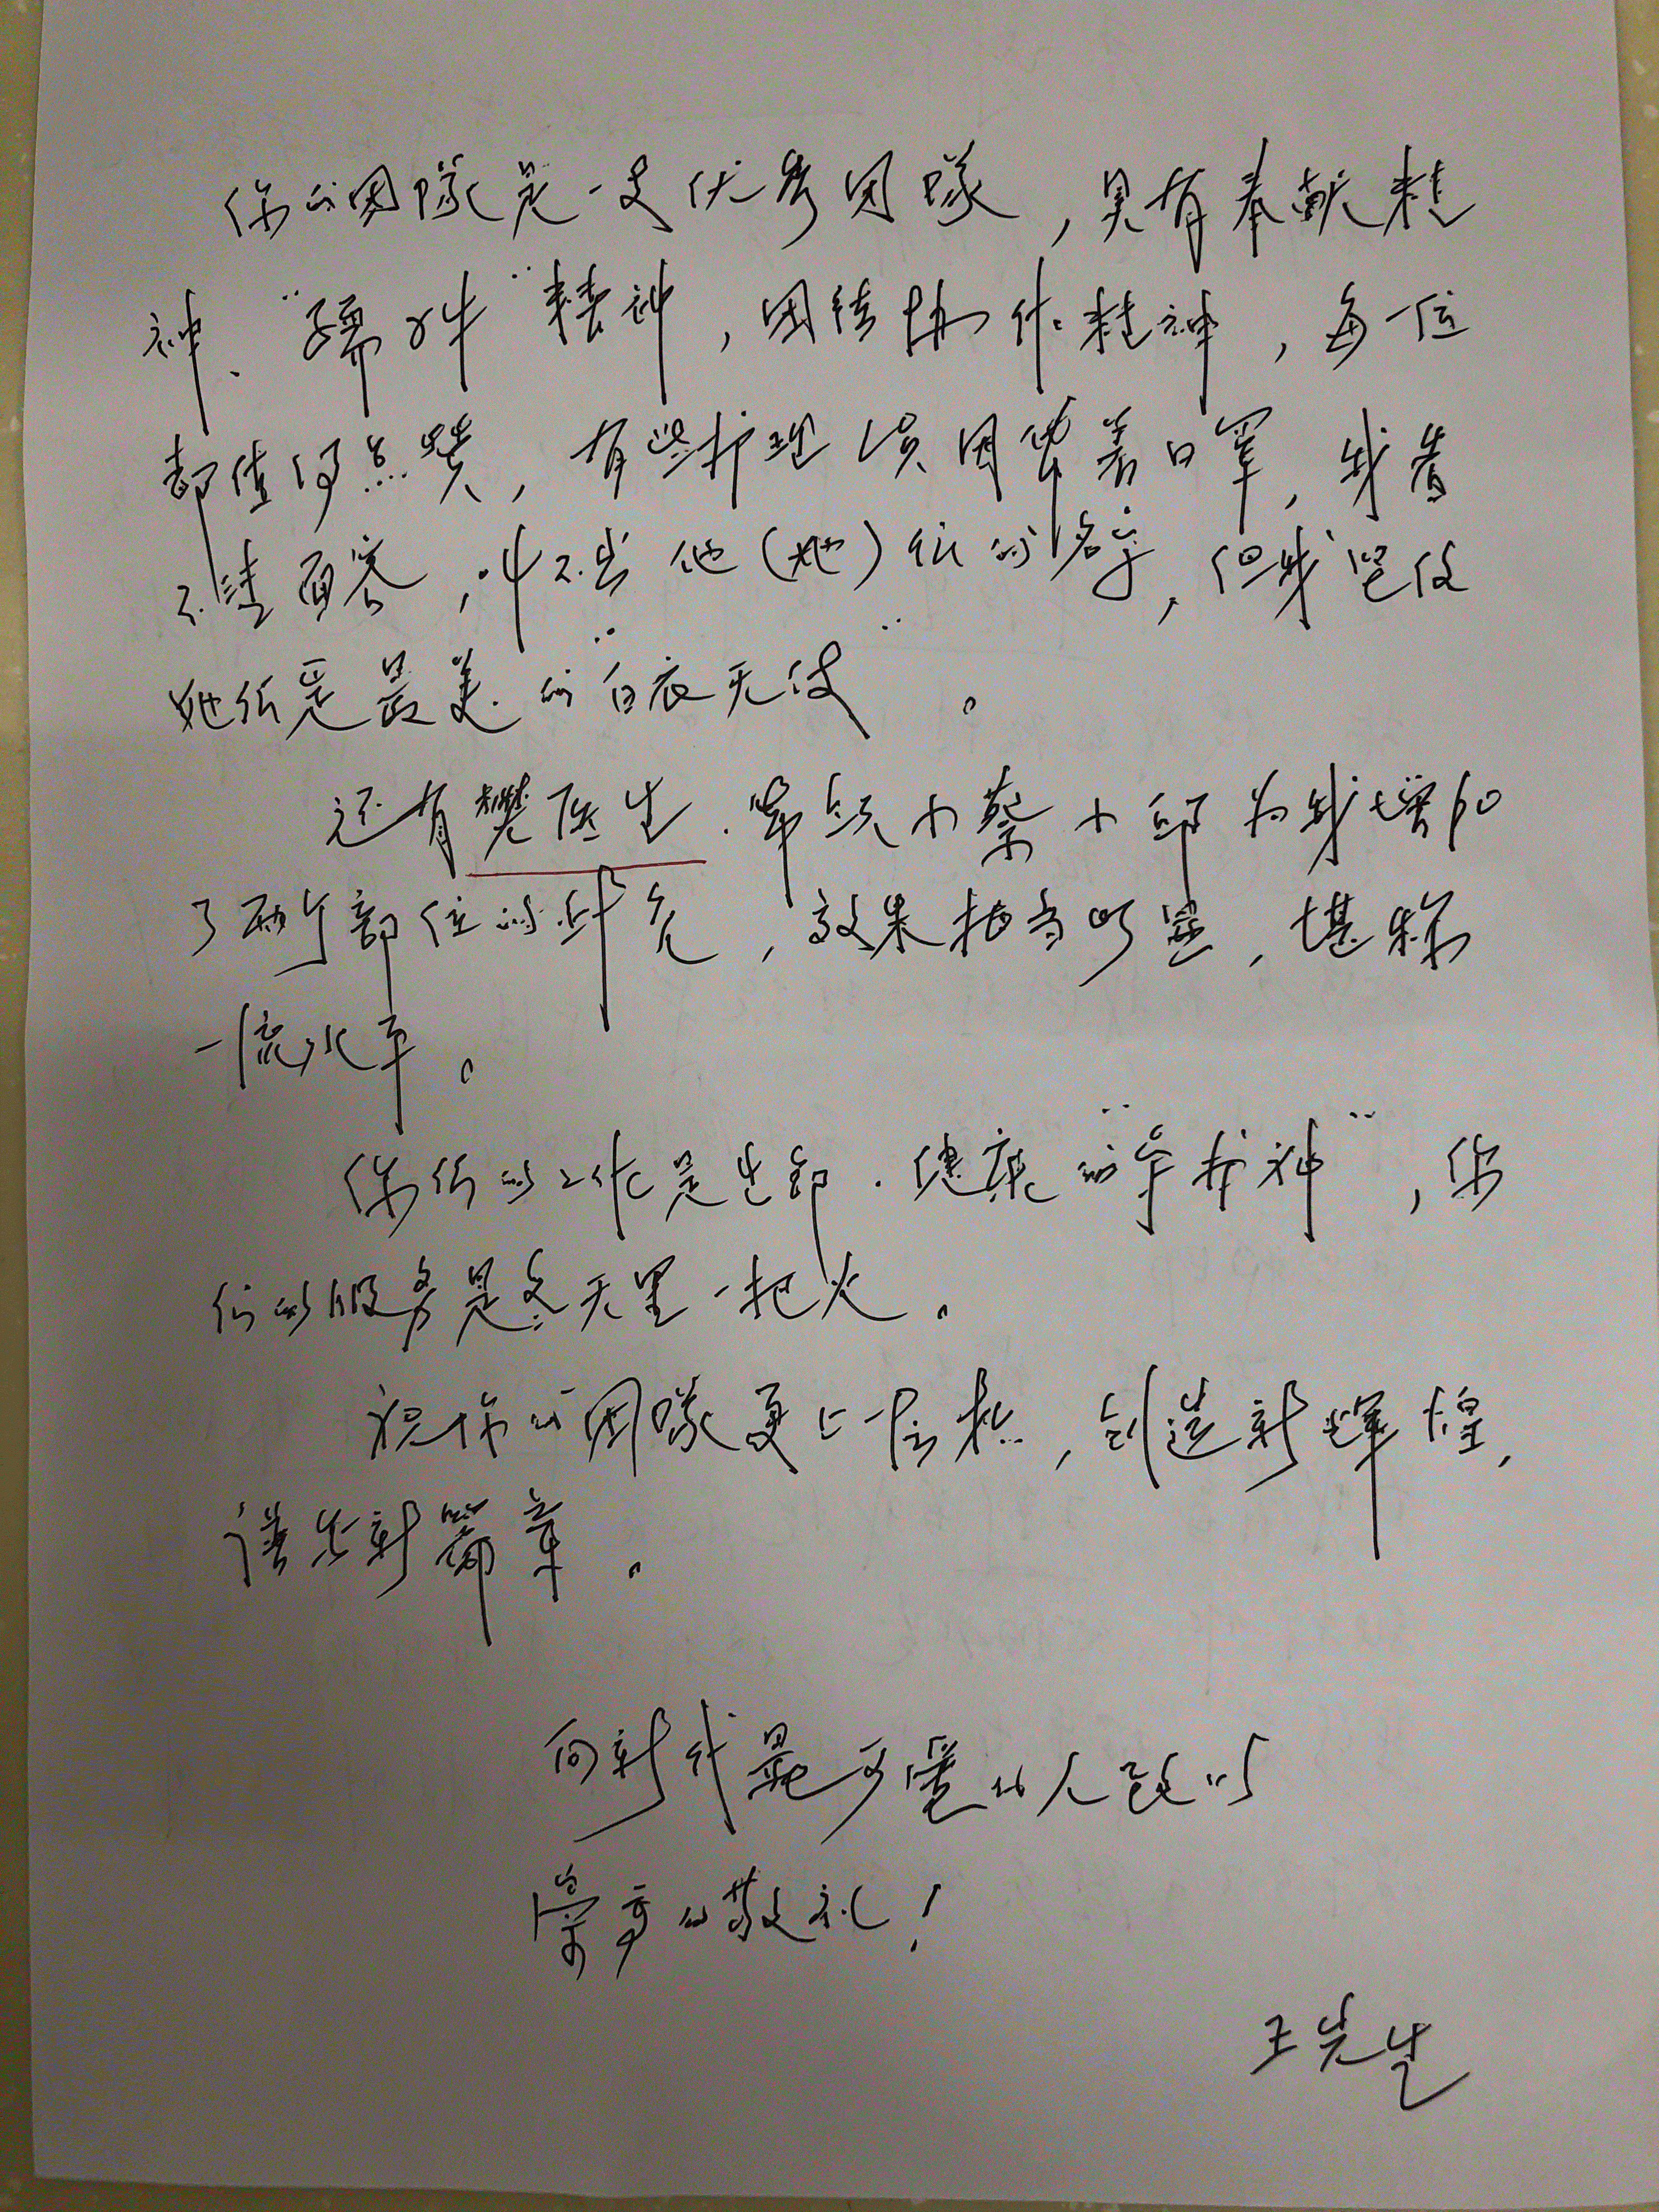 你们团隊是一支优秀团隊，具有奉献精
神、“孺子牛”精神，团结协作精神，每一位
都值得点赞，有些护理员因带着口罩，我看
不清面容，叫不出他（她）们的名字，但我坚信
她们是最美的“白衣天使”。
还有樊医生.带领小蔡小邱为我增加
了两个部位的，效果相当明显，堪称
一流水平。
你们的工作是生命.健康的“守护神”，你
们的服务是冬天里一把火。
祝你们团隊更上一层楼，创造新辉煌，
谱出新篇章。
向新时代最可爱的人致以
崇高的敬礼！
王先生